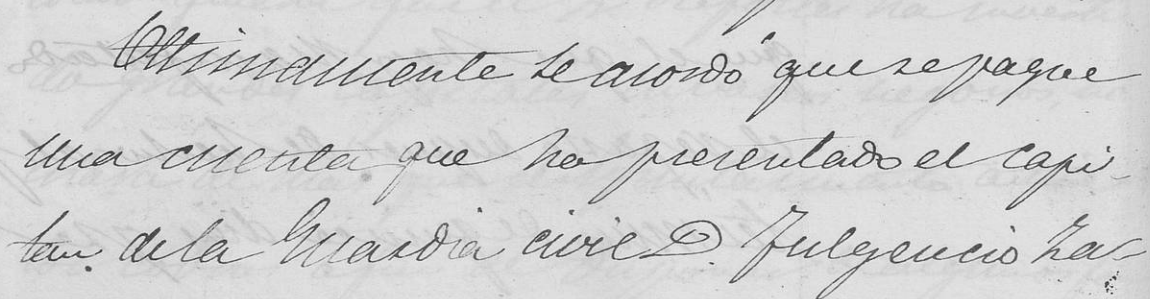 Ultimamente se acordó que se pague
una cuenta que ha presentado el capi-
tan de la Guardia civil D. Fulgencio Za-